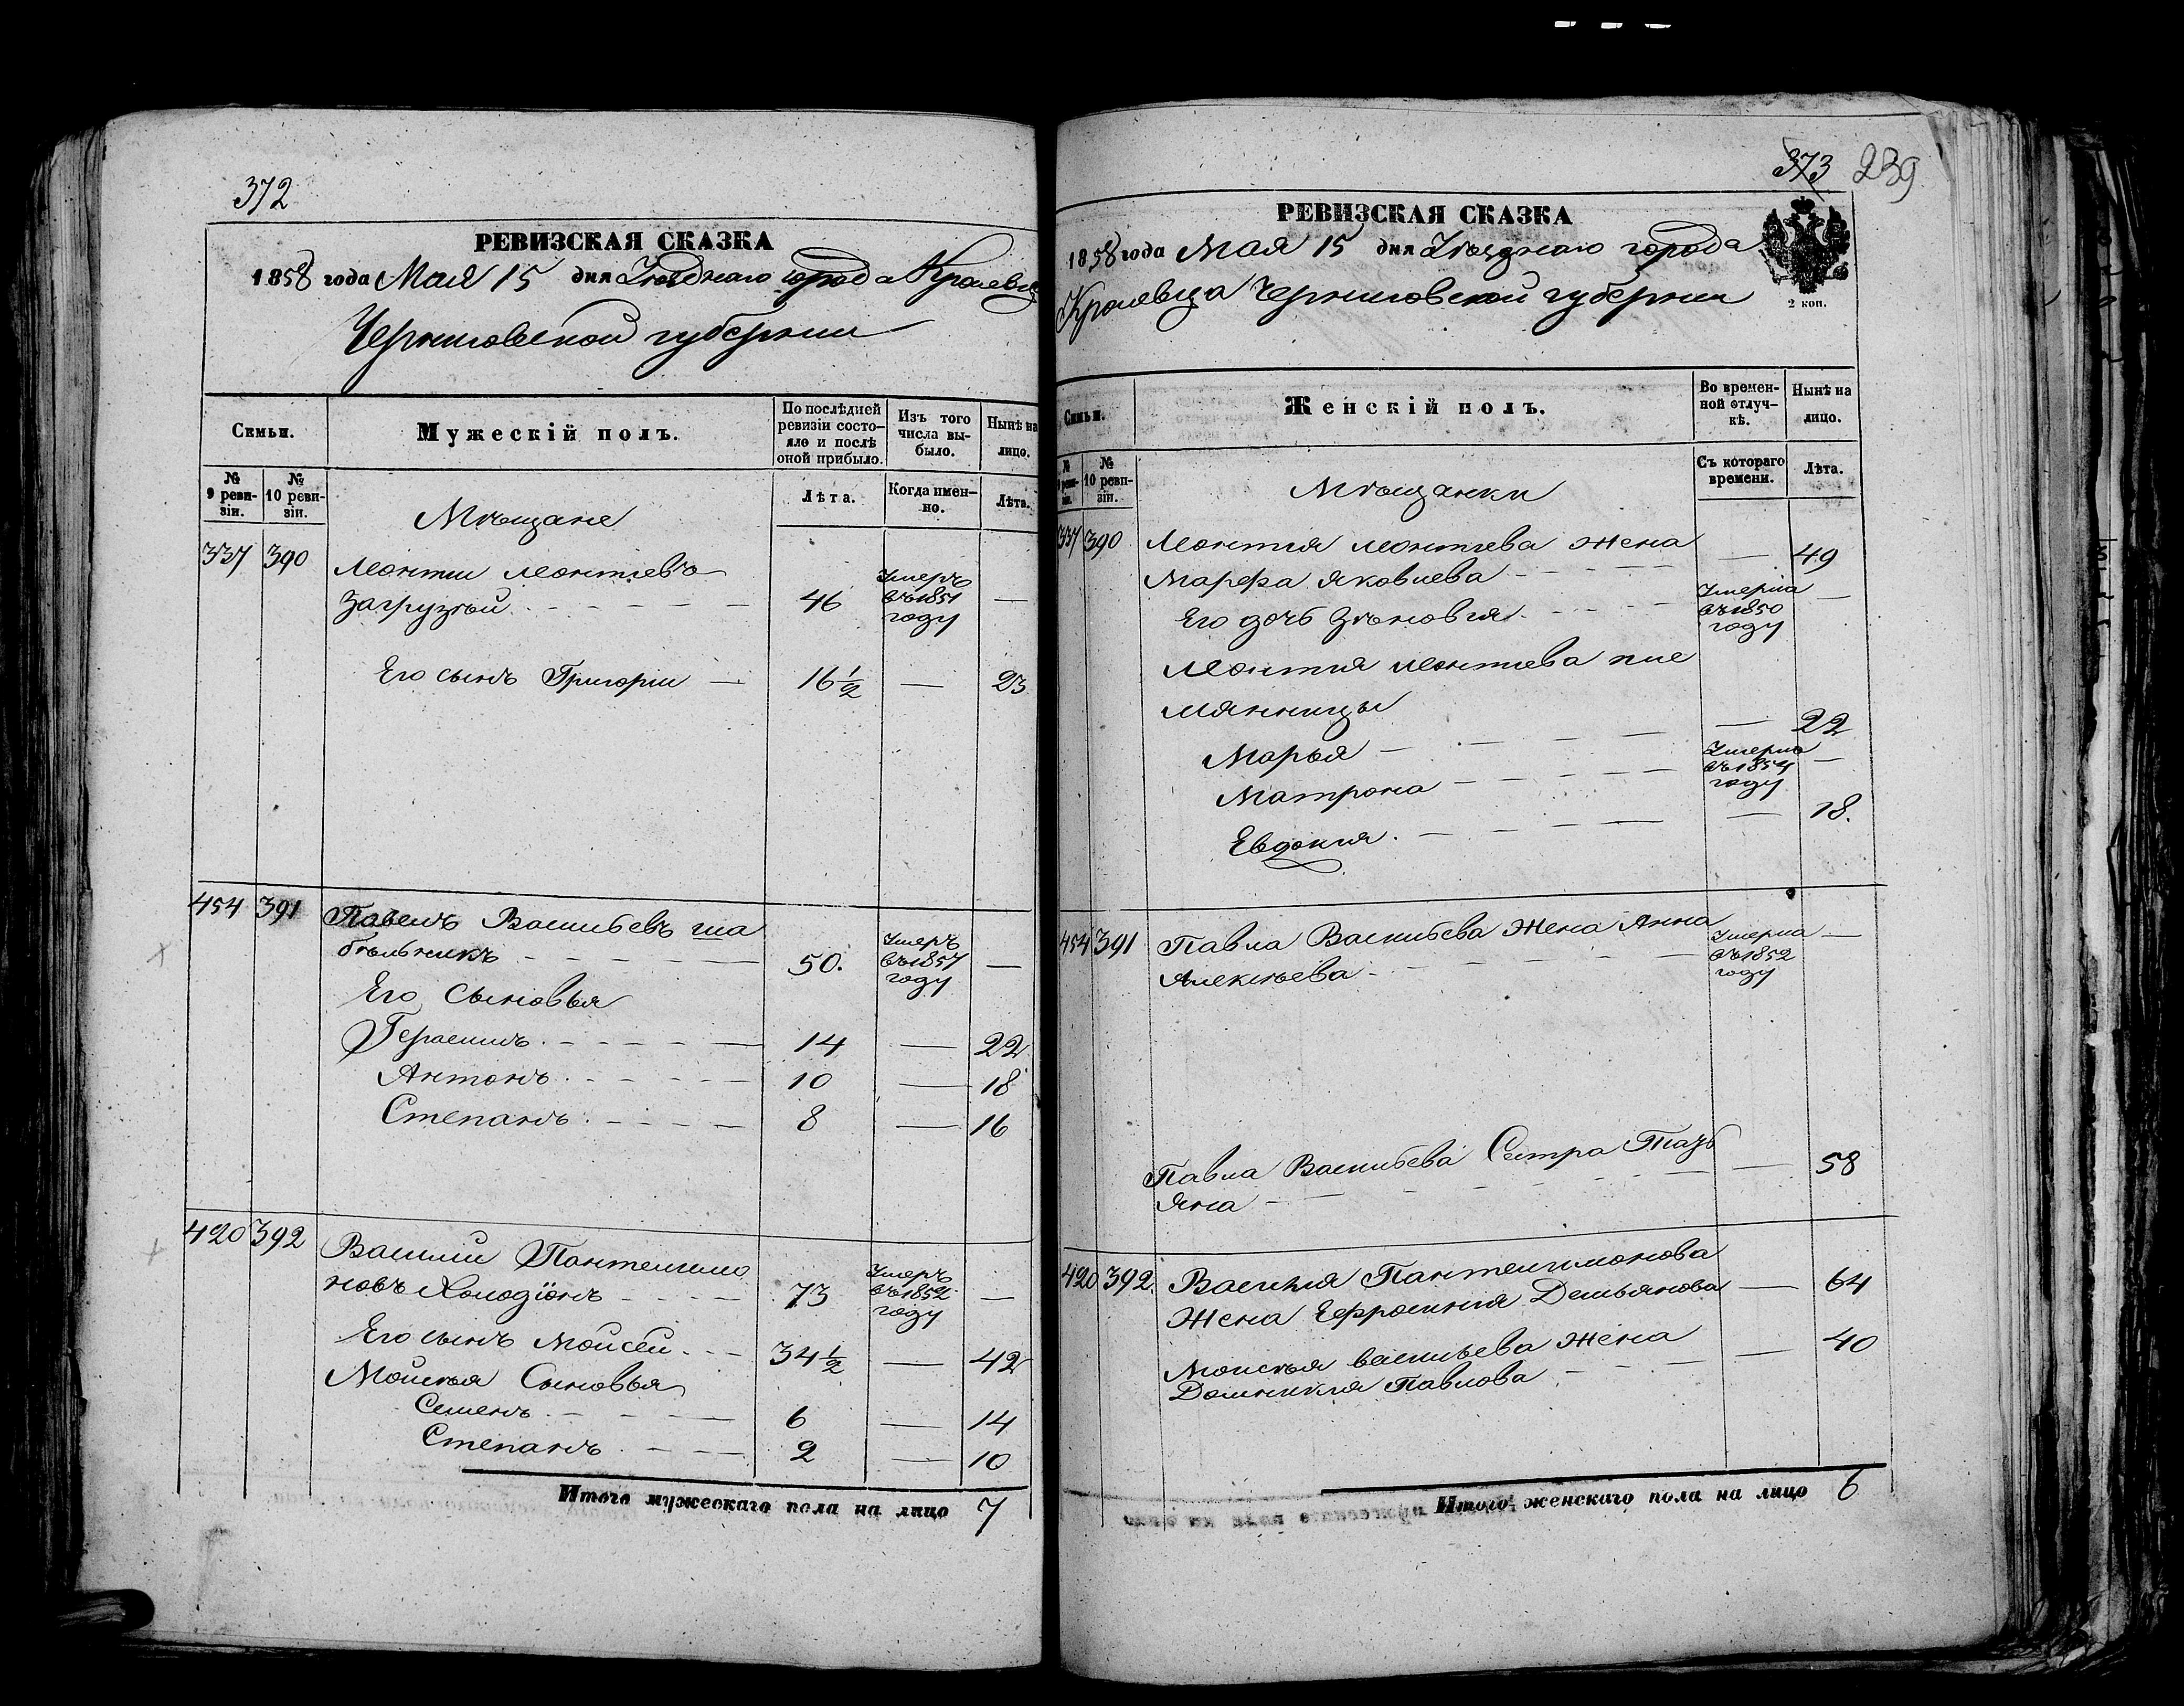 372
РЕВИЗСКАЯ СКАЗКА
1858 года Мая 15 дня Уѣзднаго города Кролевца
Черниговской губернии
Семьи.
Мужескій полъ.
По послѣдней ревизіи состояло и послѣ оной прибыло.
Изъ того числа выбыло.
Нынѣ на лицо.
№ 9 ревизіи.
№ 10 ревизіи.
Мѣщане
Лѣта.
Когда именно.
Лѣта.
337 390 Леонтий Леонтиевъ
Загрузкый 46 Умеръ въ 1851 году —
Его сынъ Григории — 16 1/2 — 23
454 391 Павелъ Васильевъ
50. Умеръ въ 1857 году —
Его Сыновья
Герасимъ 14 — 22
Антонъ 10 — 18
Степанъ 8 — 16
420 392 Василий Пантелеимо
новъ Холодіонъ 73 Умеръ въ 1852 году —
Его сынъ Моисей 34 1/2 — 42
Моисея Сыновья
Семенъ 6 — 14
Степанъ 2 — 10
Итого мужескаго пола на лицо 7
373 239
РЕВИЗСКАЯ СКАЗКА
1858 года Мая 15 дня Уѣзднаго города
Кролевца Черниговской губернии
2 коп.
Семьи.
Женскій полъ.
Во временной отлучкѣ.
Нынѣ на лицо.
№ 9 ревизіи.
№ 10 ревизіи.
Мѣщанки
Съ котораго времени.
Лѣта.
337 390 Леонтия Леонтиева жена
Марфа Яковлева — 49
Его дочь Зѣновия Умерла въ 1850 году —
Леонтия Леонтиева пле
мянницы
Марья — 22
Матрона Умерла въ 1854 году —
Евдокия — 18.
454 391 Павла Васильева Жена Анна
Алексѣева Умерла въ 1852 году —
Павла Васильева Сестра Тать
яна — 58
420 392 Василия Пантелимонова
Жена Ефросиния Демьянова — 64
Моисея Васильева жена
Домникия Павлова — 40
Итого женскаго пола на лицо 6